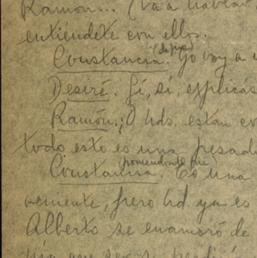 Ramón... (Va a hablar
entiéndete con ellos.
Constancia. (de pie) Yo voy a
Desiré. Sí, sí, explicás
Ramón. ¡O Uds. están
todo esto es una pesad
Constancia. poniendose pie Es una
vemente, pero Ud. ya es
Alberto se enamoró de